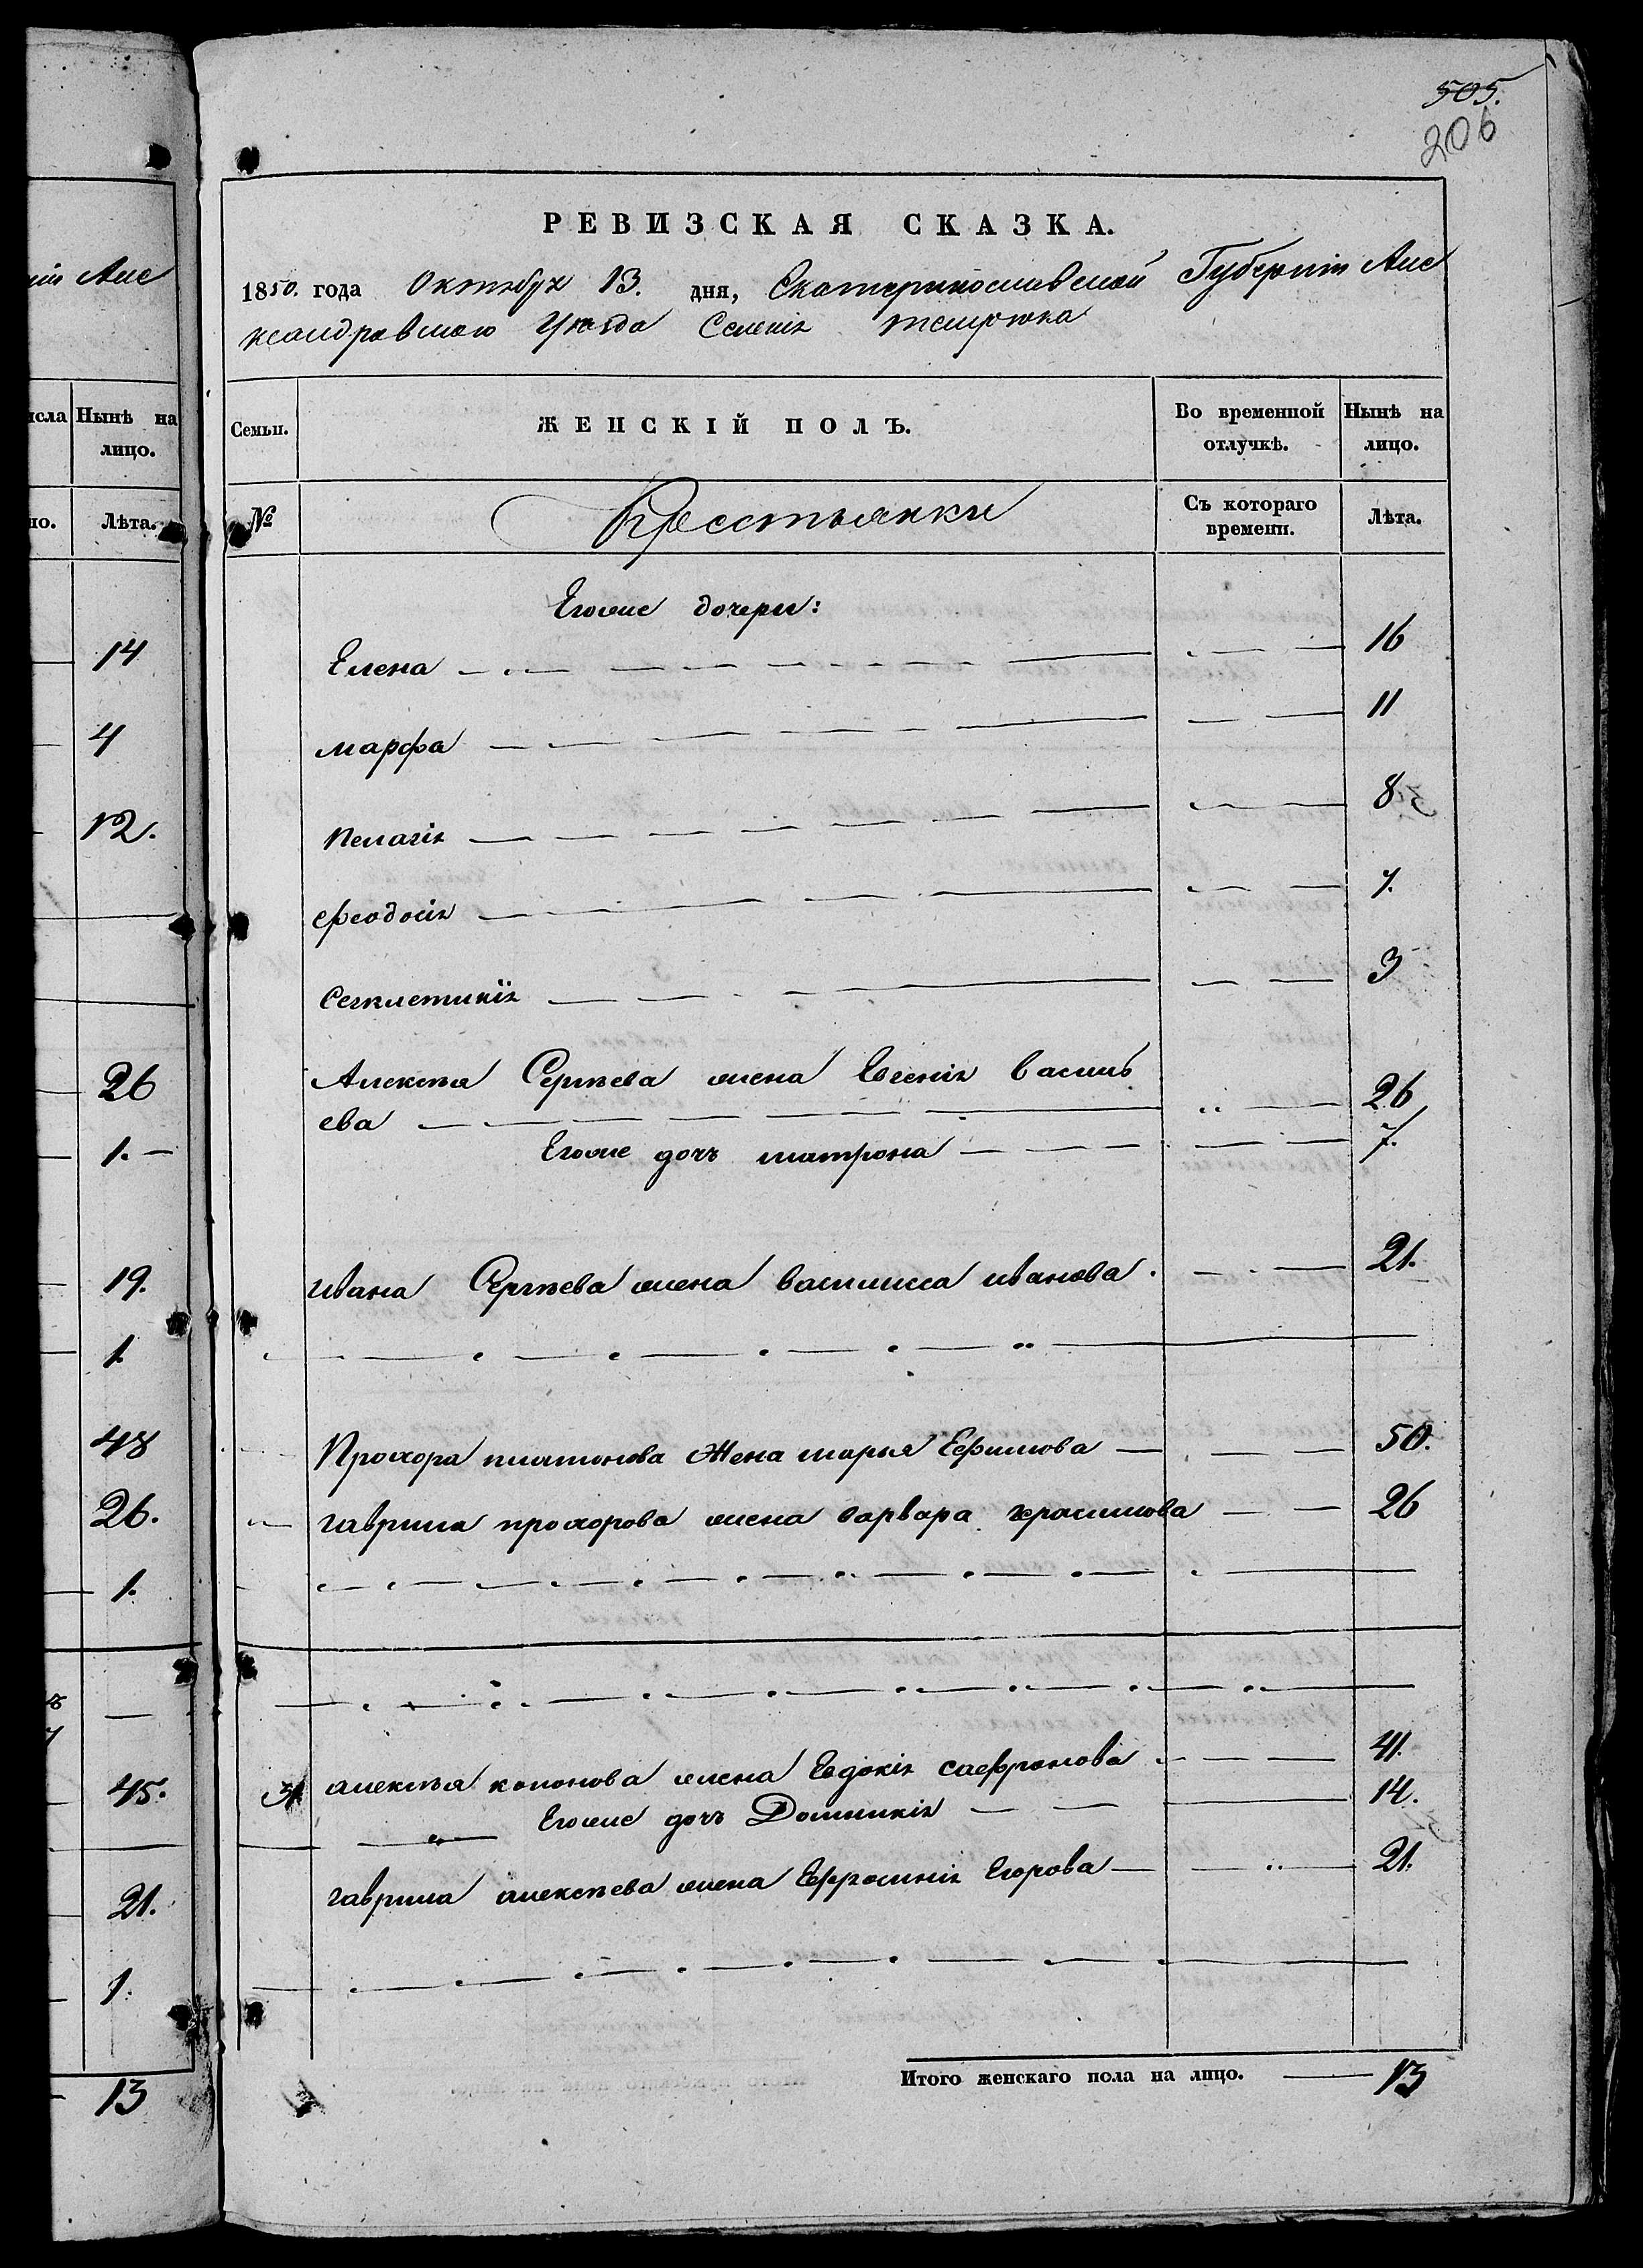 505.
206
РЕВИЗСКАЯ СКАЗКА.
1850. года Октября 13. дня, Екатеринославской Губерніи Але
ксандровскаго Уѣзда Селенія
Семьи.
ЖЕНСКІЙ ПОЛЪ.
Во временной отлучкѣ.
Нынѣ на лицо.
№
Крестьянки
Съ котораго времени.
Лѣта.
Егоже дочери:
Елена 16
марфа 11
пелагія 8
феодосія 7.
Сегклетикія 3
Алексѣя Сергѣева жена Евгенія василь
ева 26
Егоже дочь матрона 7.
ивана Сергѣева жена василиса иванова. 21.
Прохора платонова Жена марья Ефимова 50.
гаврила прохорова жена варвара герасимова 26
31 алексѣя кононова жена Евдокія сафронова 41.
Егоже дочь Домникія 14.
гаврила алексѣева жена Ефросинія Егорова 21.
Итого женскаго пола на лицо. 13
ніи Але
исла
Нынѣ на
лицо.
но.
Лѣта.
14
4
12.
26
1.
19.
1
48
26.
1.
45.
21.
1.
13